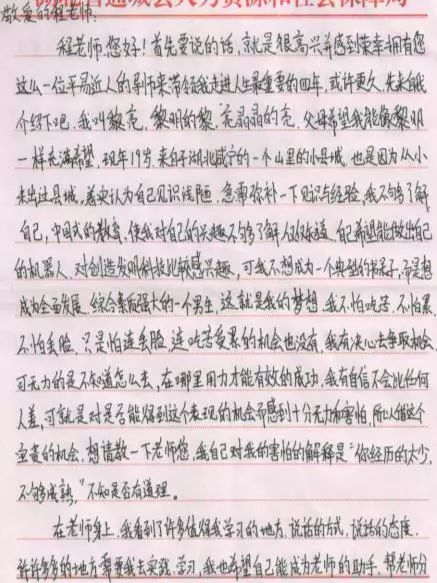 湖北省通城县人力资源和社会保障局
敬爱的程老师:
程老师,您好!首先要说的话,就是很高兴并感到荣幸拥有您
这么一位平易近人的导师来带领我走进人生最重要的四年,或许更久,先来自我
介绍下吧,我叫黎亮,黎明的黎,亮晶晶的亮,父母希望我能像黎明
一样充满希望,现年19岁,来自于湖北咸宁的一个山里的小县城,也是因为从小
未出过县城,着实认为自己见识浅陋,急需弥补一下见识与经验,我不够了解
自己,中国式的教育,使我对自己的兴趣不够了解,仅仅知道,自己希望能做出自己
的机器人,对创造发明科技比较感兴趣,可我不想成为一个典型的书呆子,而是想
成为全面发展,综合素质强大的一个男生,这就是我的梦想,我不怕吃苦,不怕累,
不怕丢脸,只是怕连丢脸,连吃苦受累的机会也没有,我有决心去争取机会,
可无力的是不知道怎么去,在哪里用力才能有效的成功,我有自信不会比任何
人差,可就是对是否能得到这个表现的机会而感到十分无力和害怕,所以借这个
宝贵的机会,想请教一下老师您,我自己对我的害怕的解释是“你经历的太少,
不够成熟,”不知是否有道理。
在老师身上,我看到了许多值得我学习的地方,说话的方式,说话的态度,
许许多多的地方需要我去实践,学习,我也希望自己能成为老师的助手,帮老师分